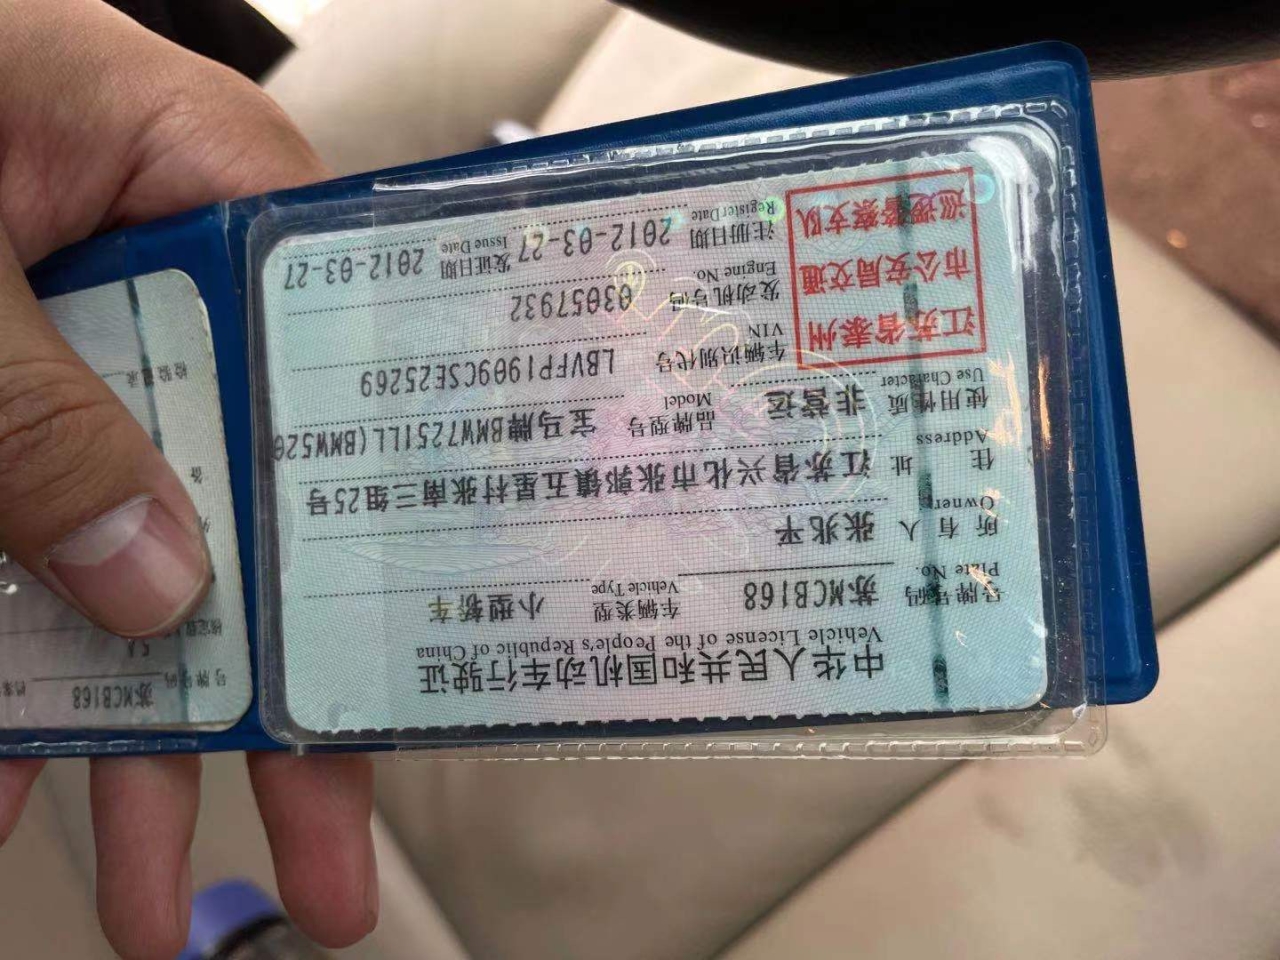 中华人民共和国机动车行驶证
Vehicle License of the People's Republic of China
号牌号码 苏MCB168 车辆类型 小型轿车
Plate No. Vehicle Type
所有人 张兆平
Owner
住址 江苏省兴化市张郭镇五星村张南三组25号
Address
使用性质 非营运 品牌型号 宝马牌BMW7251LL(BMW520
Use Character Model
江苏省泰州
市公安局交通
巡逻警察支队
车辆识别代号 LBVFP1909CSE25269
VIN
发动机号码 03057932
Engine No.
注册日期 2012-03-27 发证日期 2012-03-27
Register Date Issue Date
号牌号码 苏MCB168
5人
检验记录